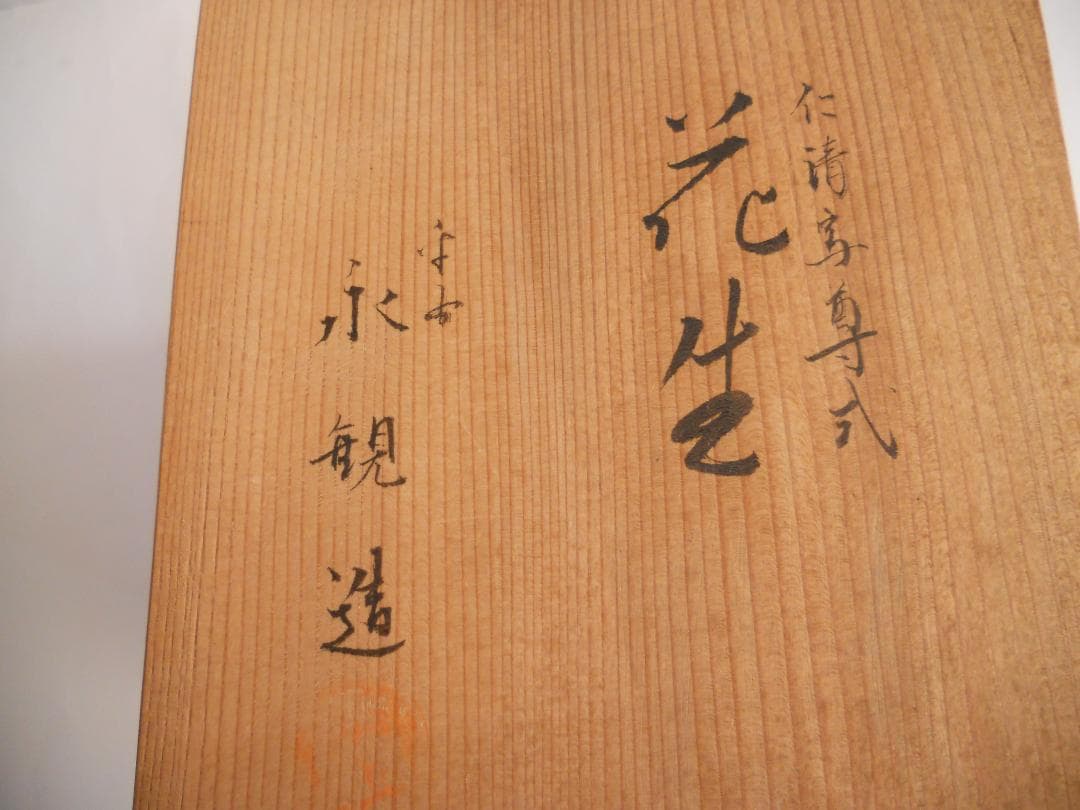 仁清写尊式
花生
平安
永観造